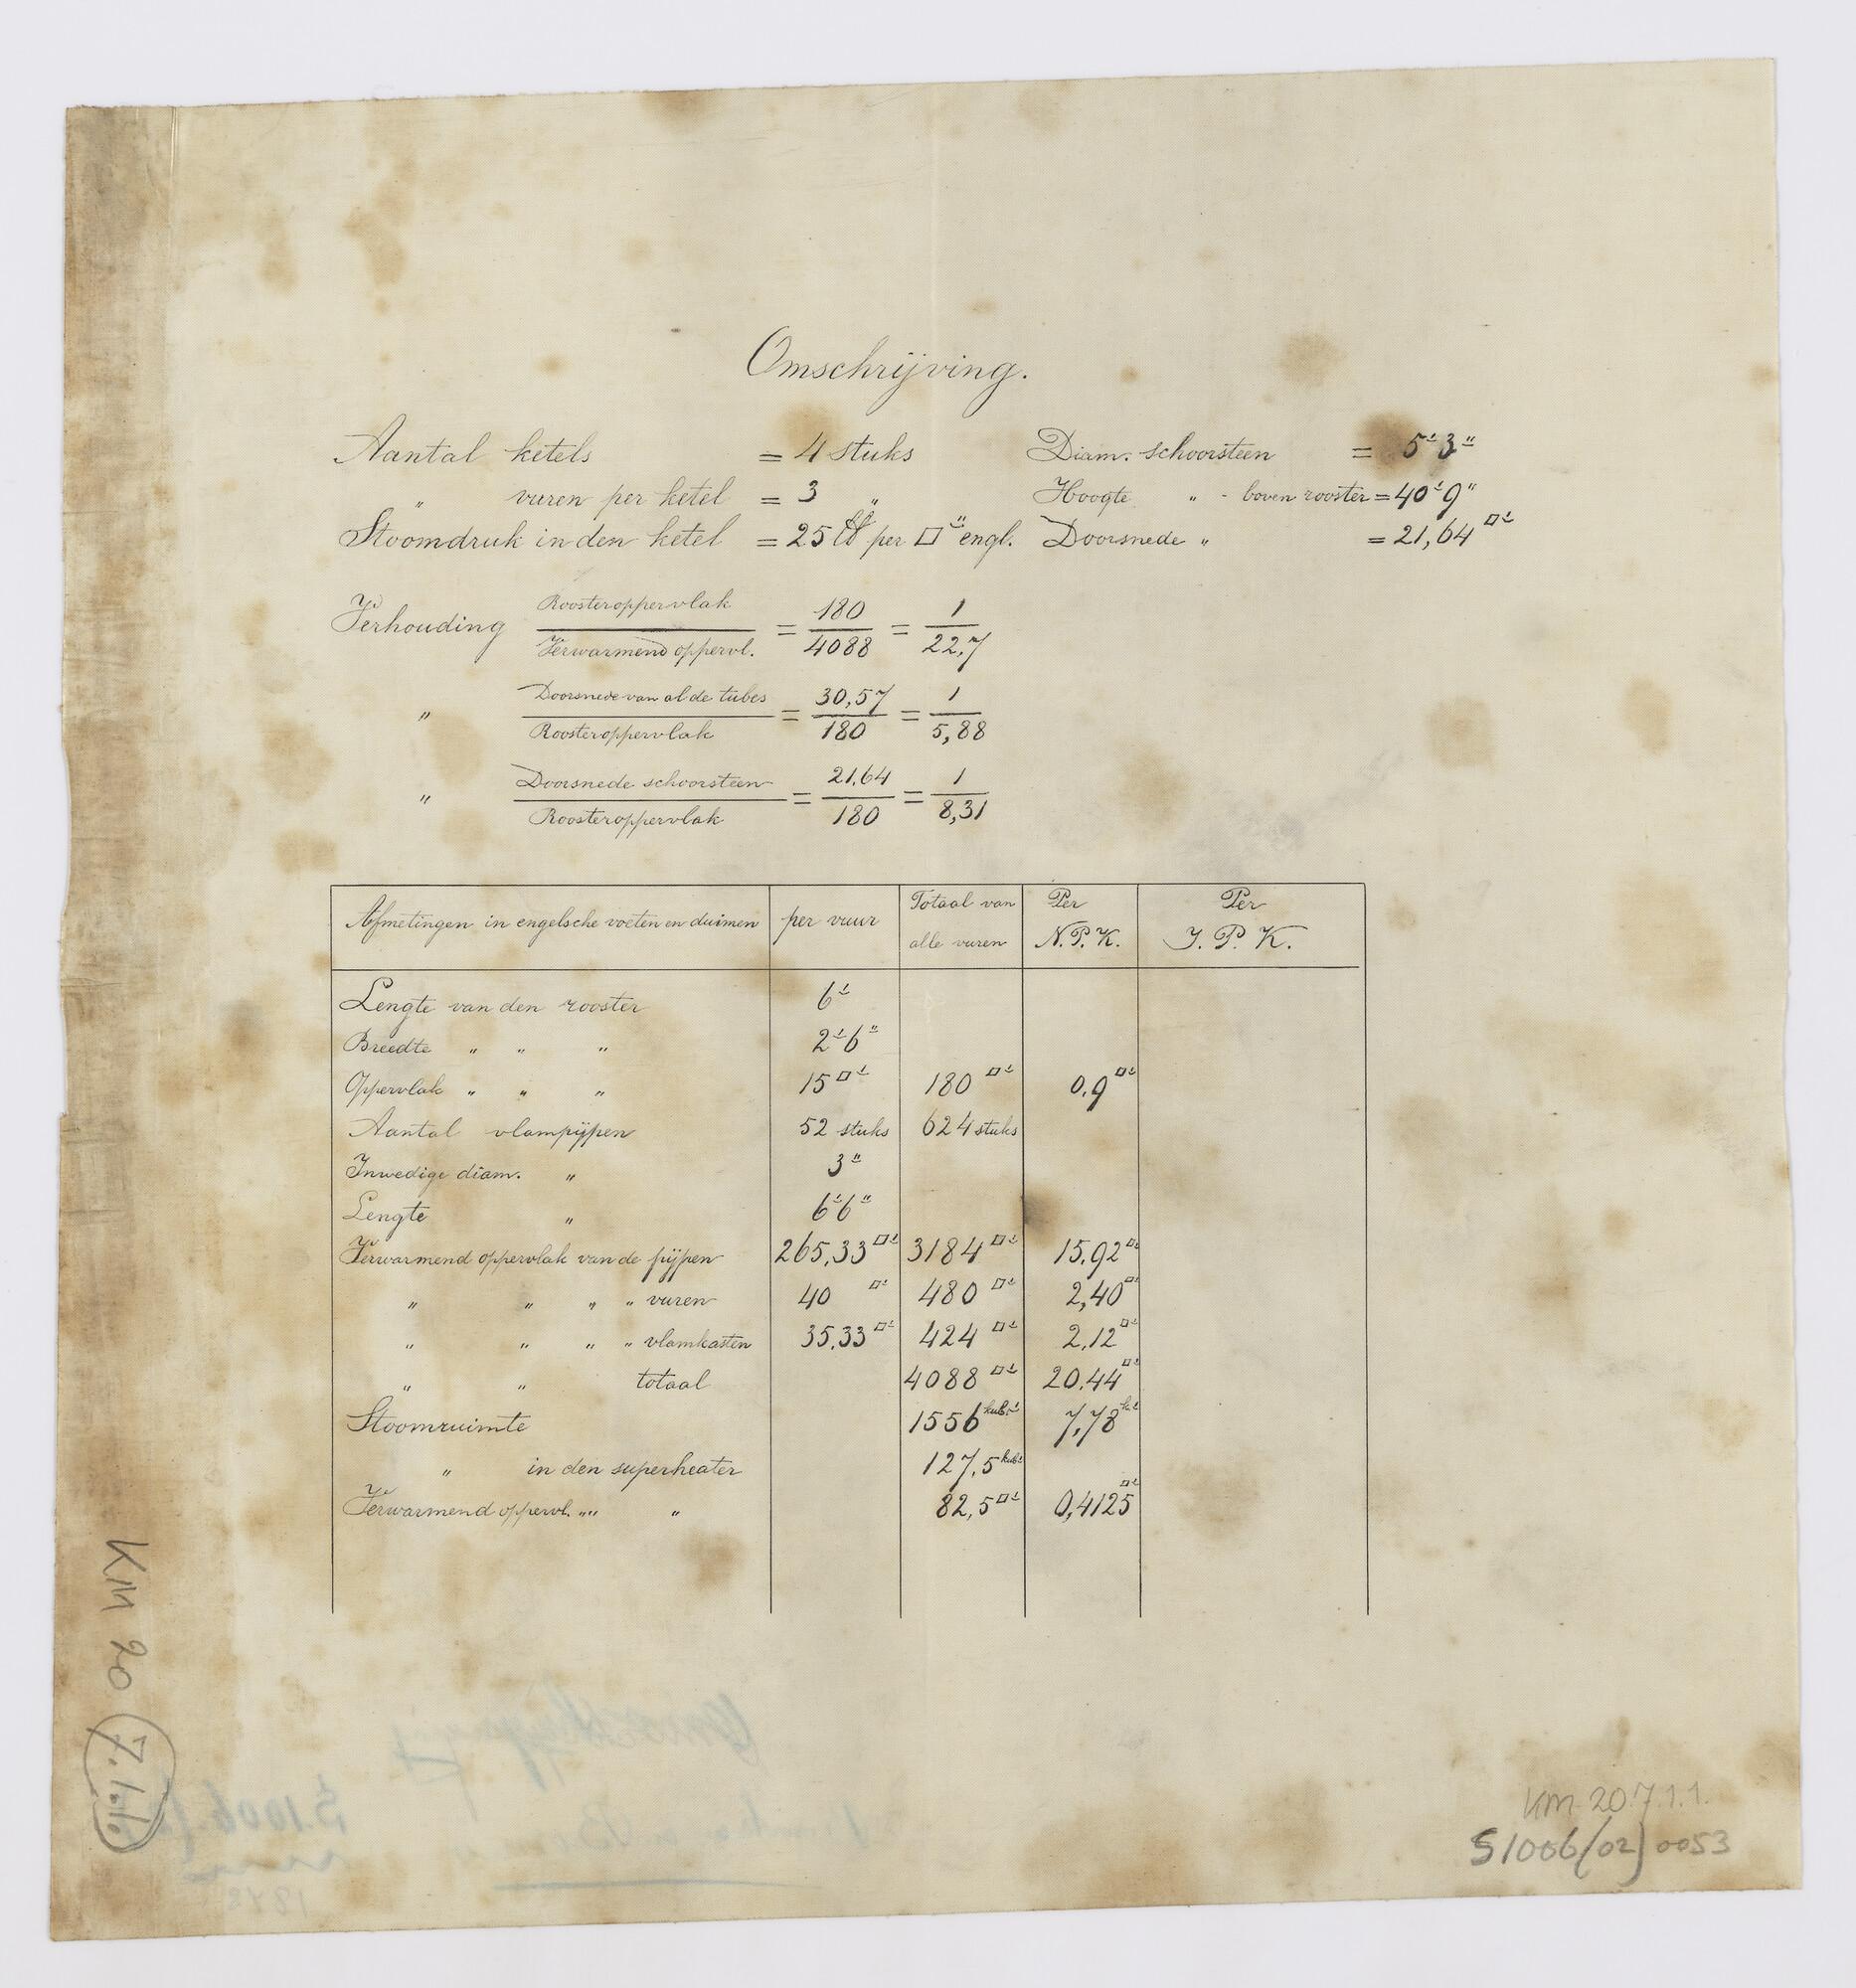 Omschrijving.
Aantal ketels = 4 stuks
" vuren per ketel = 3 "
Stoomdruk in den ketel = 25 ℔ per □" engl.
Diam. schoorsteen = 5' 3"
Hoogte " - boven rooster = 40' 9"
Doorsnede " = 21,64 □'
Verhouding Roosteroppervlak / Verwarmend oppervl. = 180/4088 = 1/22,7
" Doorsnede van al de tubes / Roosteroppervlak = 30,57/180 = 1/5,88
" Doorsnede schoorsteen / Roosteroppervlak = 21,64/180 = 1/8,31
Afmetingen in engelsche voeten en duimen | per vuur | Totaal van alle vuren | Per N.P.K. | Per I.P.K.
Lengte van den rooster 6'
Breedte " " " 2' 6"
Oppervlak " " " 15 □' 180 □' 0.9 □'
Aantal vlampijpen 52 stuks 624 stuks
Inwedige diam. " 3"
Lengte " 6' 6"
Verwarmend oppervlak van de pijpen 265,33 □' 3184 □' 15.92 □'
" " " " vuren 40 □' 480 □' 2,40 □'
" " " " vlamkasten 35,33 □' 424 □' 2,12 □'
" " totaal 4088 □' 20.44 □'
Stoomruimte 1556 kub.' 7,78 k'
" in den superheater 127,5 kub'
Verwarmend oppervl. "" " 82,5 □' 0,4125 □'
KM 20 7.1.1.
KM 20.7.1.1.
S1006(02) 0053